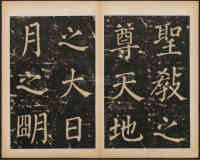 聖教之
尊天地
之大日
月之明